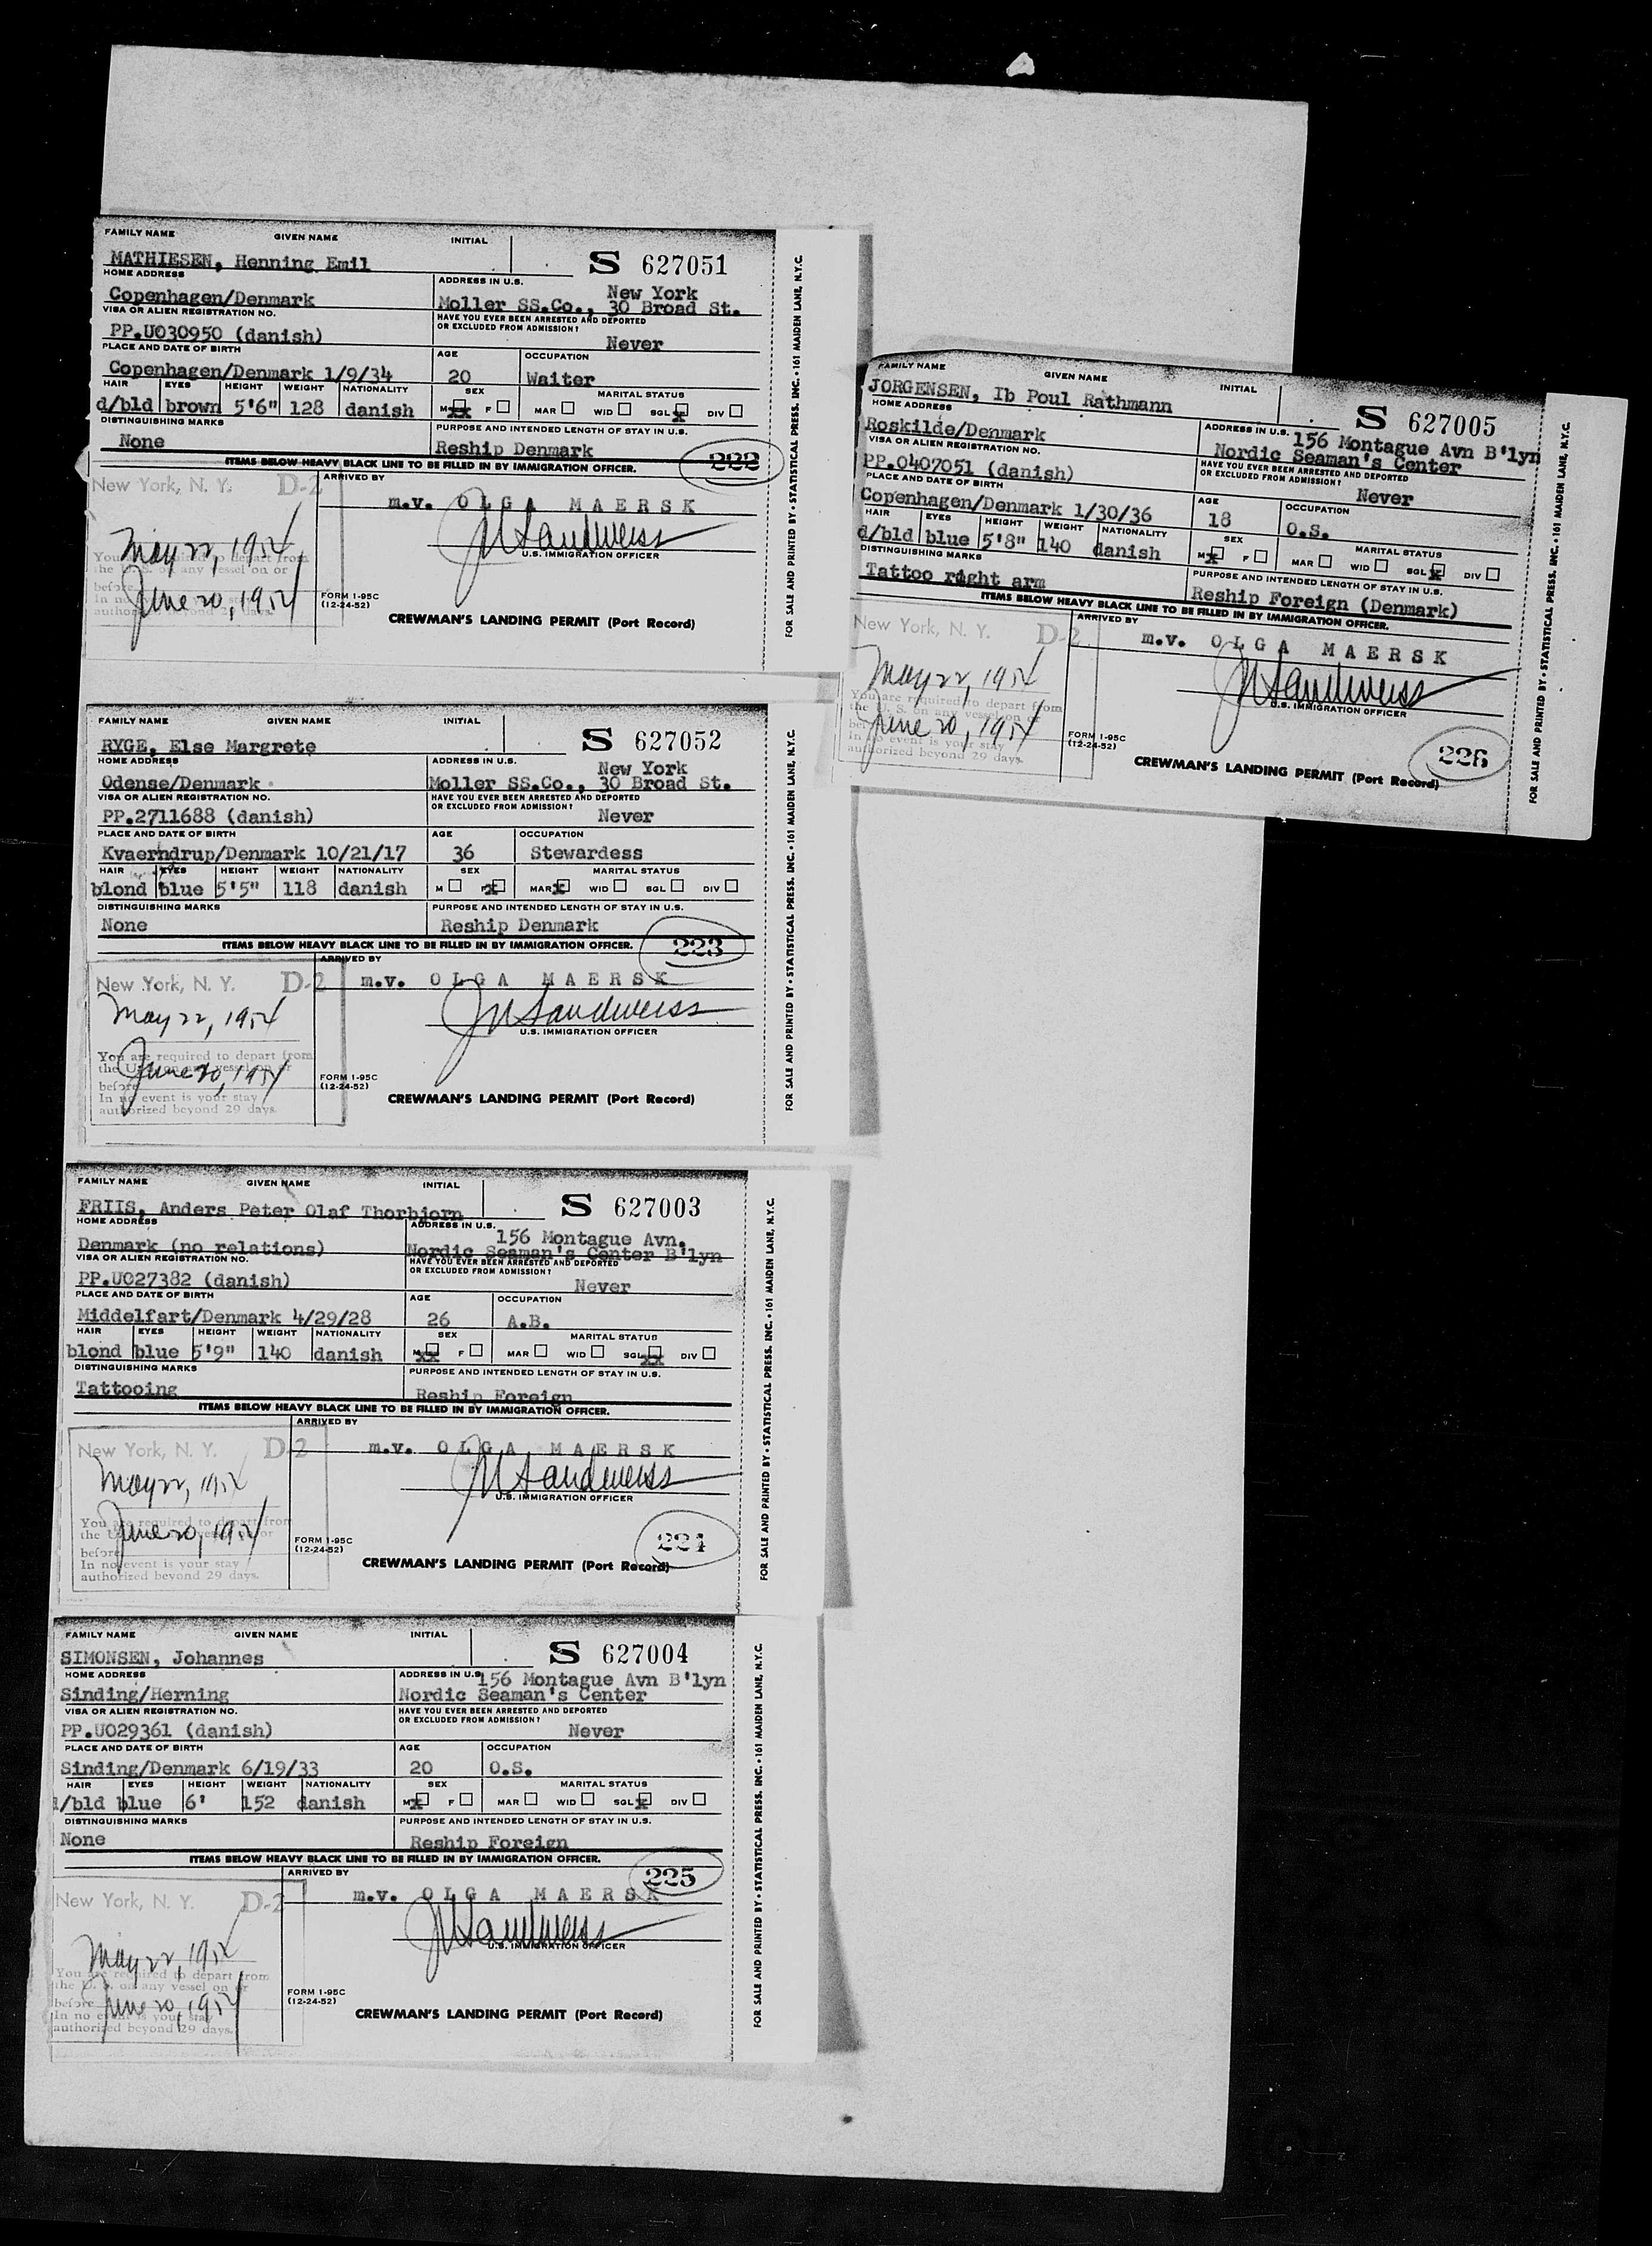 FAMILY NAME GIVEN NAME INITIAL
MATHIESEN, Henning Emil S 627051
HOME ADDRESS ADDRESS IN U.S.
New York
Copenhagen/Denmark Moller SS.Co., 30 Broad St.
VISA OR ALIEN REGISTRATION NO. HAVE YOU EVER BEEN ARRESTED AND DEPORTED
OR EXCLUDED FROM ADMISSION?
PP.U030950 (danish) Never
PLACE AND DATE OF BIRTH AGE OCCUPATION
Copenhagen/Denmark 1/9/34 20 Waiter
HAIR EYES HEIGHT WEIGHT NATIONALITY SEX MARITAL STATUS
d/bld brown 5'6" 128 danish M xx F MAR WID SGL x DIV
DISTINGUISHING MARKS PURPOSE AND INTENDED LENGTH OF STAY IN U.S.
None Reship Denmark
ITEMS BELOW HEAVY BLACK LINE TO BE FILLED IN BY IMMIGRATION OFFICER. 222
New York, N. Y. D-2 ARRIVED BY
m.v. OLGA MAERSK
May 22, 1954 JM Sandweiss
U.S. IMMIGRATION OFFICER
You are required to depart from
the U. S. on any vessel on or
before June 20, 1954
In no event is your stay
authorized beyond 29 days.
FORM I-95C
(12-24-52)
CREWMAN'S LANDING PERMIT (Port Record)
FOR SALE AND PRINTED BY • STATISTICAL PRESS, INC. • 161 MAIDEN LANE, N.Y.C.
FAMILY NAME GIVEN NAME INITIAL
RYGE, Else Margrete S 627052
HOME ADDRESS ADDRESS IN U.S.
New York
Odense/Denmark Moller SS.Co., 30 Broad St.
VISA OR ALIEN REGISTRATION NO. HAVE YOU EVER BEEN ARRESTED AND DEPORTED
OR EXCLUDED FROM ADMISSION?
PP.2711688 (danish) Never
PLACE AND DATE OF BIRTH AGE OCCUPATION
Kvaerndrup/Denmark 10/21/17 36 Stewardess
HAIR EYES HEIGHT WEIGHT NATIONALITY SEX MARITAL STATUS
blond blue 5'5" 118 danish M F x MAR x WID SGL DIV
DISTINGUISHING MARKS PURPOSE AND INTENDED LENGTH OF STAY IN U.S.
None Reship Denmark
ITEMS BELOW HEAVY BLACK LINE TO BE FILLED IN BY IMMIGRATION OFFICER. 223
ARRIVED BY
New York, N. Y. D-2 m.v. OLGA MAERSK
May 22, 1954 JM Sandweiss
U.S. IMMIGRATION OFFICER
You are required to depart from
the U. S. on any vessel on or
before June 20, 1954
In no event is your stay
authorized beyond 29 days.
FORM I-95C
(12-24-52)
CREWMAN'S LANDING PERMIT (Port Record)
FOR SALE AND PRINTED BY • STATISTICAL PRESS, INC. • 161 MAIDEN LANE, N.Y.C.
FAMILY NAME GIVEN NAME INITIAL
FRIIS, Anders Peter Olaf Thorbjorn S 627003
HOME ADDRESS ADDRESS IN U.S.
156 Montague Avn.
Denmark (no relations) Nordic Seaman's Center B'lyn
VISA OR ALIEN REGISTRATION NO. HAVE YOU EVER BEEN ARRESTED AND DEPORTED
OR EXCLUDED FROM ADMISSION?
PP.U027382 (danish) Never
PLACE AND DATE OF BIRTH AGE OCCUPATION
Middelfart/Denmark 4/29/28 26 A.B.
HAIR EYES HEIGHT WEIGHT NATIONALITY SEX MARITAL STATUS
blond blue 5'9" 140 danish M xx F MAR WID SGL xx DIV
DISTINGUISHING MARKS PURPOSE AND INTENDED LENGTH OF STAY IN U.S.
Tattooing Reship Foreign
ITEMS BELOW HEAVY BLACK LINE TO BE FILLED IN BY IMMIGRATION OFFICER.
ARRIVED BY
New York, N. Y. D-2 m.v. OLGA MAERSK
May 22, 1954 JM Sandweiss
U.S. IMMIGRATION OFFICER
You are required to depart from
the U. S. on any vessel on or
before June 20, 1954
In no event is your stay
authorized beyond 29 days.
FORM I-95C
(12-24-52)
224
CREWMAN'S LANDING PERMIT (Port Record)
FOR SALE AND PRINTED BY • STATISTICAL PRESS, INC. • 161 MAIDEN LANE, N.Y.C.
FAMILY NAME GIVEN NAME INITIAL
SIMONSEN, Johannes S 627004
HOME ADDRESS ADDRESS IN U.S. 156 Montague Avn B'lyn
Sinding/Herning Nordic Seaman's Center
VISA OR ALIEN REGISTRATION NO. HAVE YOU EVER BEEN ARRESTED AND DEPORTED
OR EXCLUDED FROM ADMISSION?
PP.U029361 (danish) Never
PLACE AND DATE OF BIRTH AGE OCCUPATION
Sinding/Denmark 6/19/33 20 O.S.
HAIR EYES HEIGHT WEIGHT NATIONALITY SEX MARITAL STATUS
d/bld blue 6' 152 danish M x F MAR WID SGL x DIV
DISTINGUISHING MARKS PURPOSE AND INTENDED LENGTH OF STAY IN U.S.
None Reship Foreign
ITEMS BELOW HEAVY BLACK LINE TO BE FILLED IN BY IMMIGRATION OFFICER.
ARRIVED BY 225
New York, N. Y. D-2 m.v. OLGA MAERSK
May 22, 1954 JM Sandweiss
U.S. IMMIGRATION OFFICER
You are required to depart from
the U. S. on any vessel on or
before June 20, 1954
In no event is your stay
authorized beyond 29 days.
FORM I-95C
(12-24-52)
CREWMAN'S LANDING PERMIT (Port Record)
FOR SALE AND PRINTED BY • STATISTICAL PRESS, INC. • 161 MAIDEN LANE, N.Y.C.
FAMILY NAME GIVEN NAME INITIAL
JORGENSEN, Ib Poul Rathmann S 627005
HOME ADDRESS ADDRESS IN U.S. 156 Montague Avn B'lyn
Roskilde/Denmark Nordic Seaman's Center
VISA OR ALIEN REGISTRATION NO. HAVE YOU EVER BEEN ARRESTED AND DEPORTED
OR EXCLUDED FROM ADMISSION?
PP.0407051 (danish) Never
PLACE AND DATE OF BIRTH AGE OCCUPATION
Copenhagen/Denmark 1/30/36 18 O.S.
HAIR EYES HEIGHT WEIGHT NATIONALITY SEX MARITAL STATUS
d/bld blue 5'8" 140 danish M x F MAR WID SGL x DIV
DISTINGUISHING MARKS PURPOSE AND INTENDED LENGTH OF STAY IN U.S.
Tattoo right arm Reship Foreign (Denmark)
ITEMS BELOW HEAVY BLACK LINE TO BE FILLED IN BY IMMIGRATION OFFICER.
New York, N. Y. D-2 ARRIVED BY
m.v. OLGA MAERSK
May 22, 1954 JM Sandweiss
U.S. IMMIGRATION OFFICER
You are required to depart from
the U. S. on any vessel on or
before June 20, 1954
In no event is your stay
authorized beyond 29 days.
FORM I-95C
(12-24-52)
226
CREWMAN'S LANDING PERMIT (Port Record)
FOR SALE AND PRINTED BY • STATISTICAL PRESS, INC. • 161 MAIDEN LANE, N.Y.C.